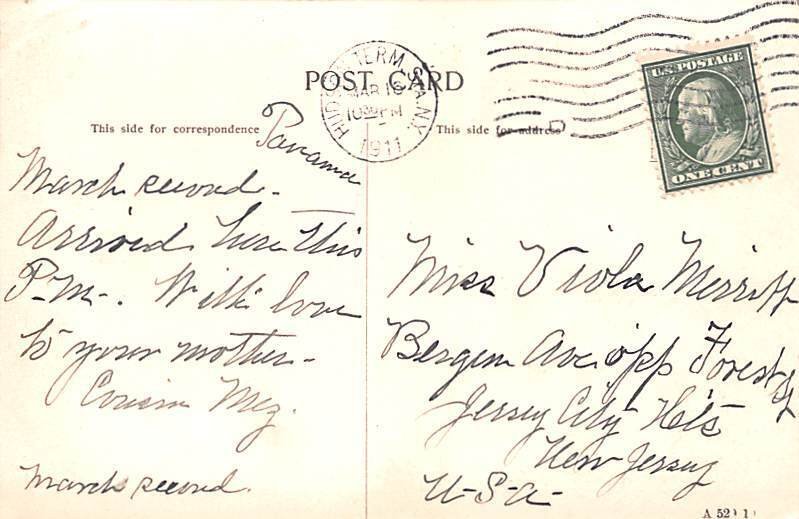 POST CARD
This side for correspondence
This side for address
HUD. TERM. STA. N.Y.
MAR 16
10 30 PM
1911
U.S. POSTAGE
ONE CENT
Panama
March second.
Arrived here this
P.M. With love
to your mother.
Cousin Meg.
March second.
Miss Viola Merritt
Bergen Ave opp Forest St
Jersey City Hets
New Jersey
U-S-a-